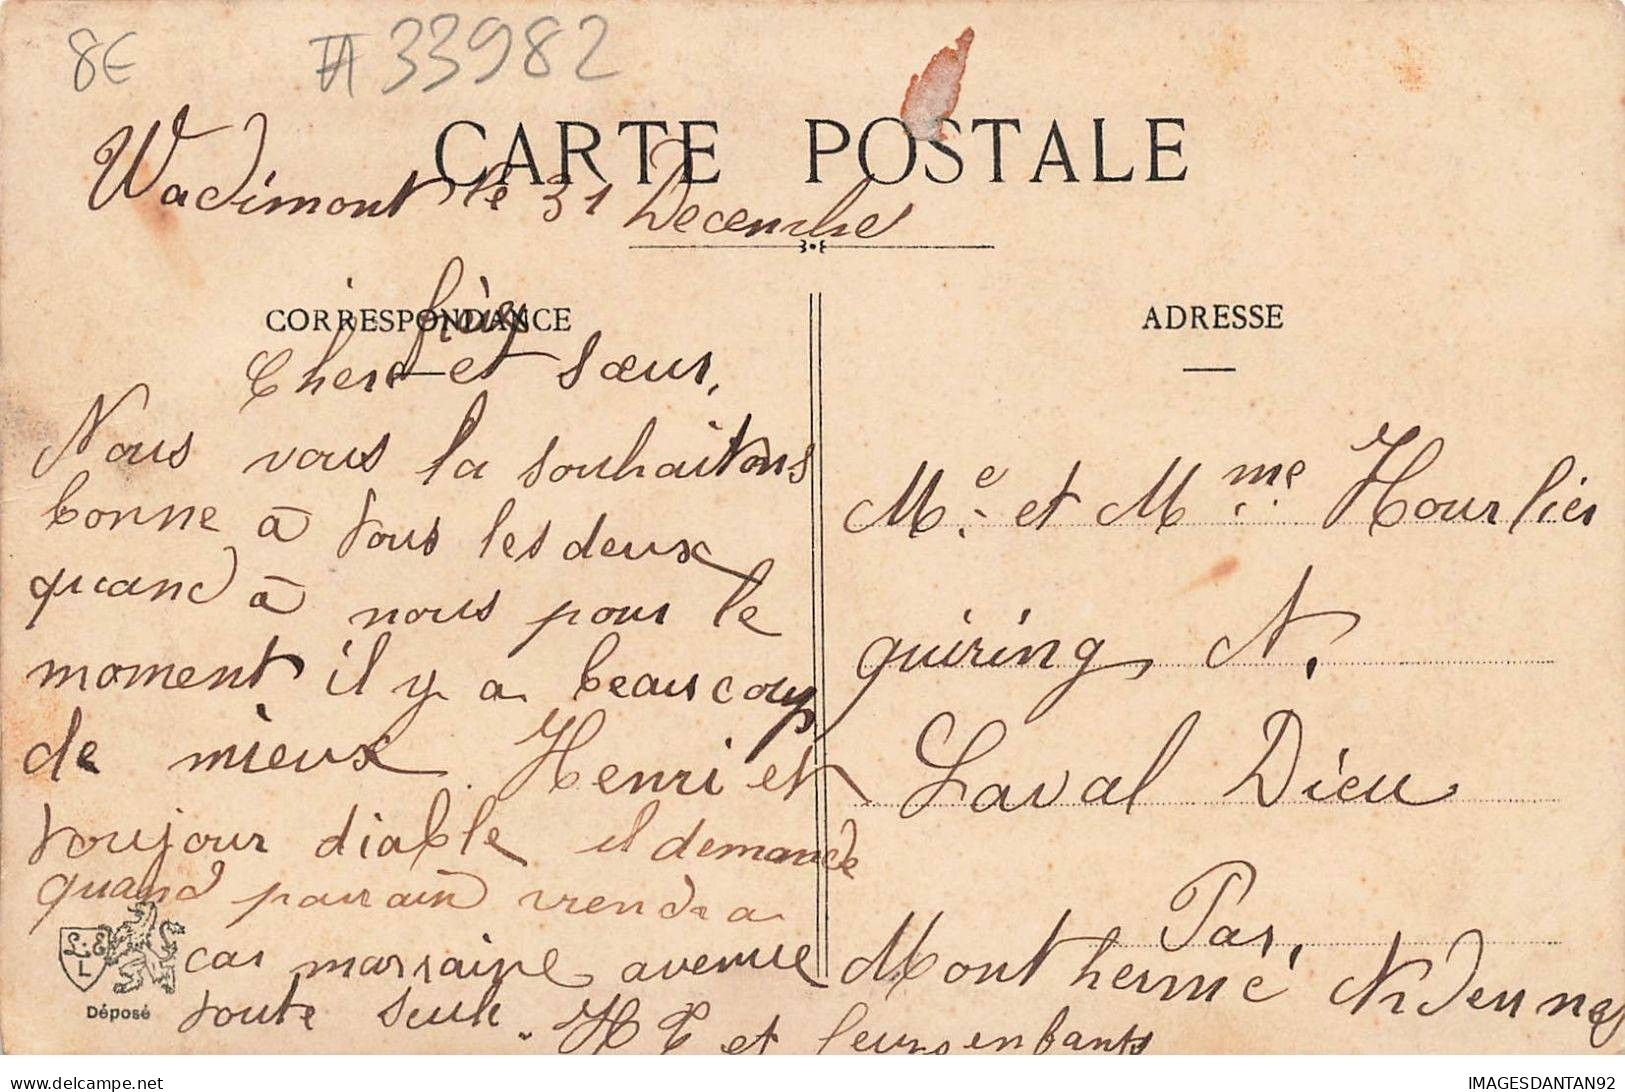 8€ #33982
CARTE POSTALE
Wadimont le 31 Decembre
CORRESPONDANCE
frère
Chers et sœur,
Nous vous la souhaitons
bonne à tous les deux
quand à nous pour le
moment il y a beaucoup
de mieux. Henri et
toujour diable il demande
quand parrain viendra
car marraine avenue
toute seule. H E et leurs enfants
L.E
L
Déposé
ADRESSE
Mr. et Mme Hourlier
quiring A.
Laval Dieu
Par,
Monthermé Ardennes
https://www.delcampe.net
IMAGESDANTAN92